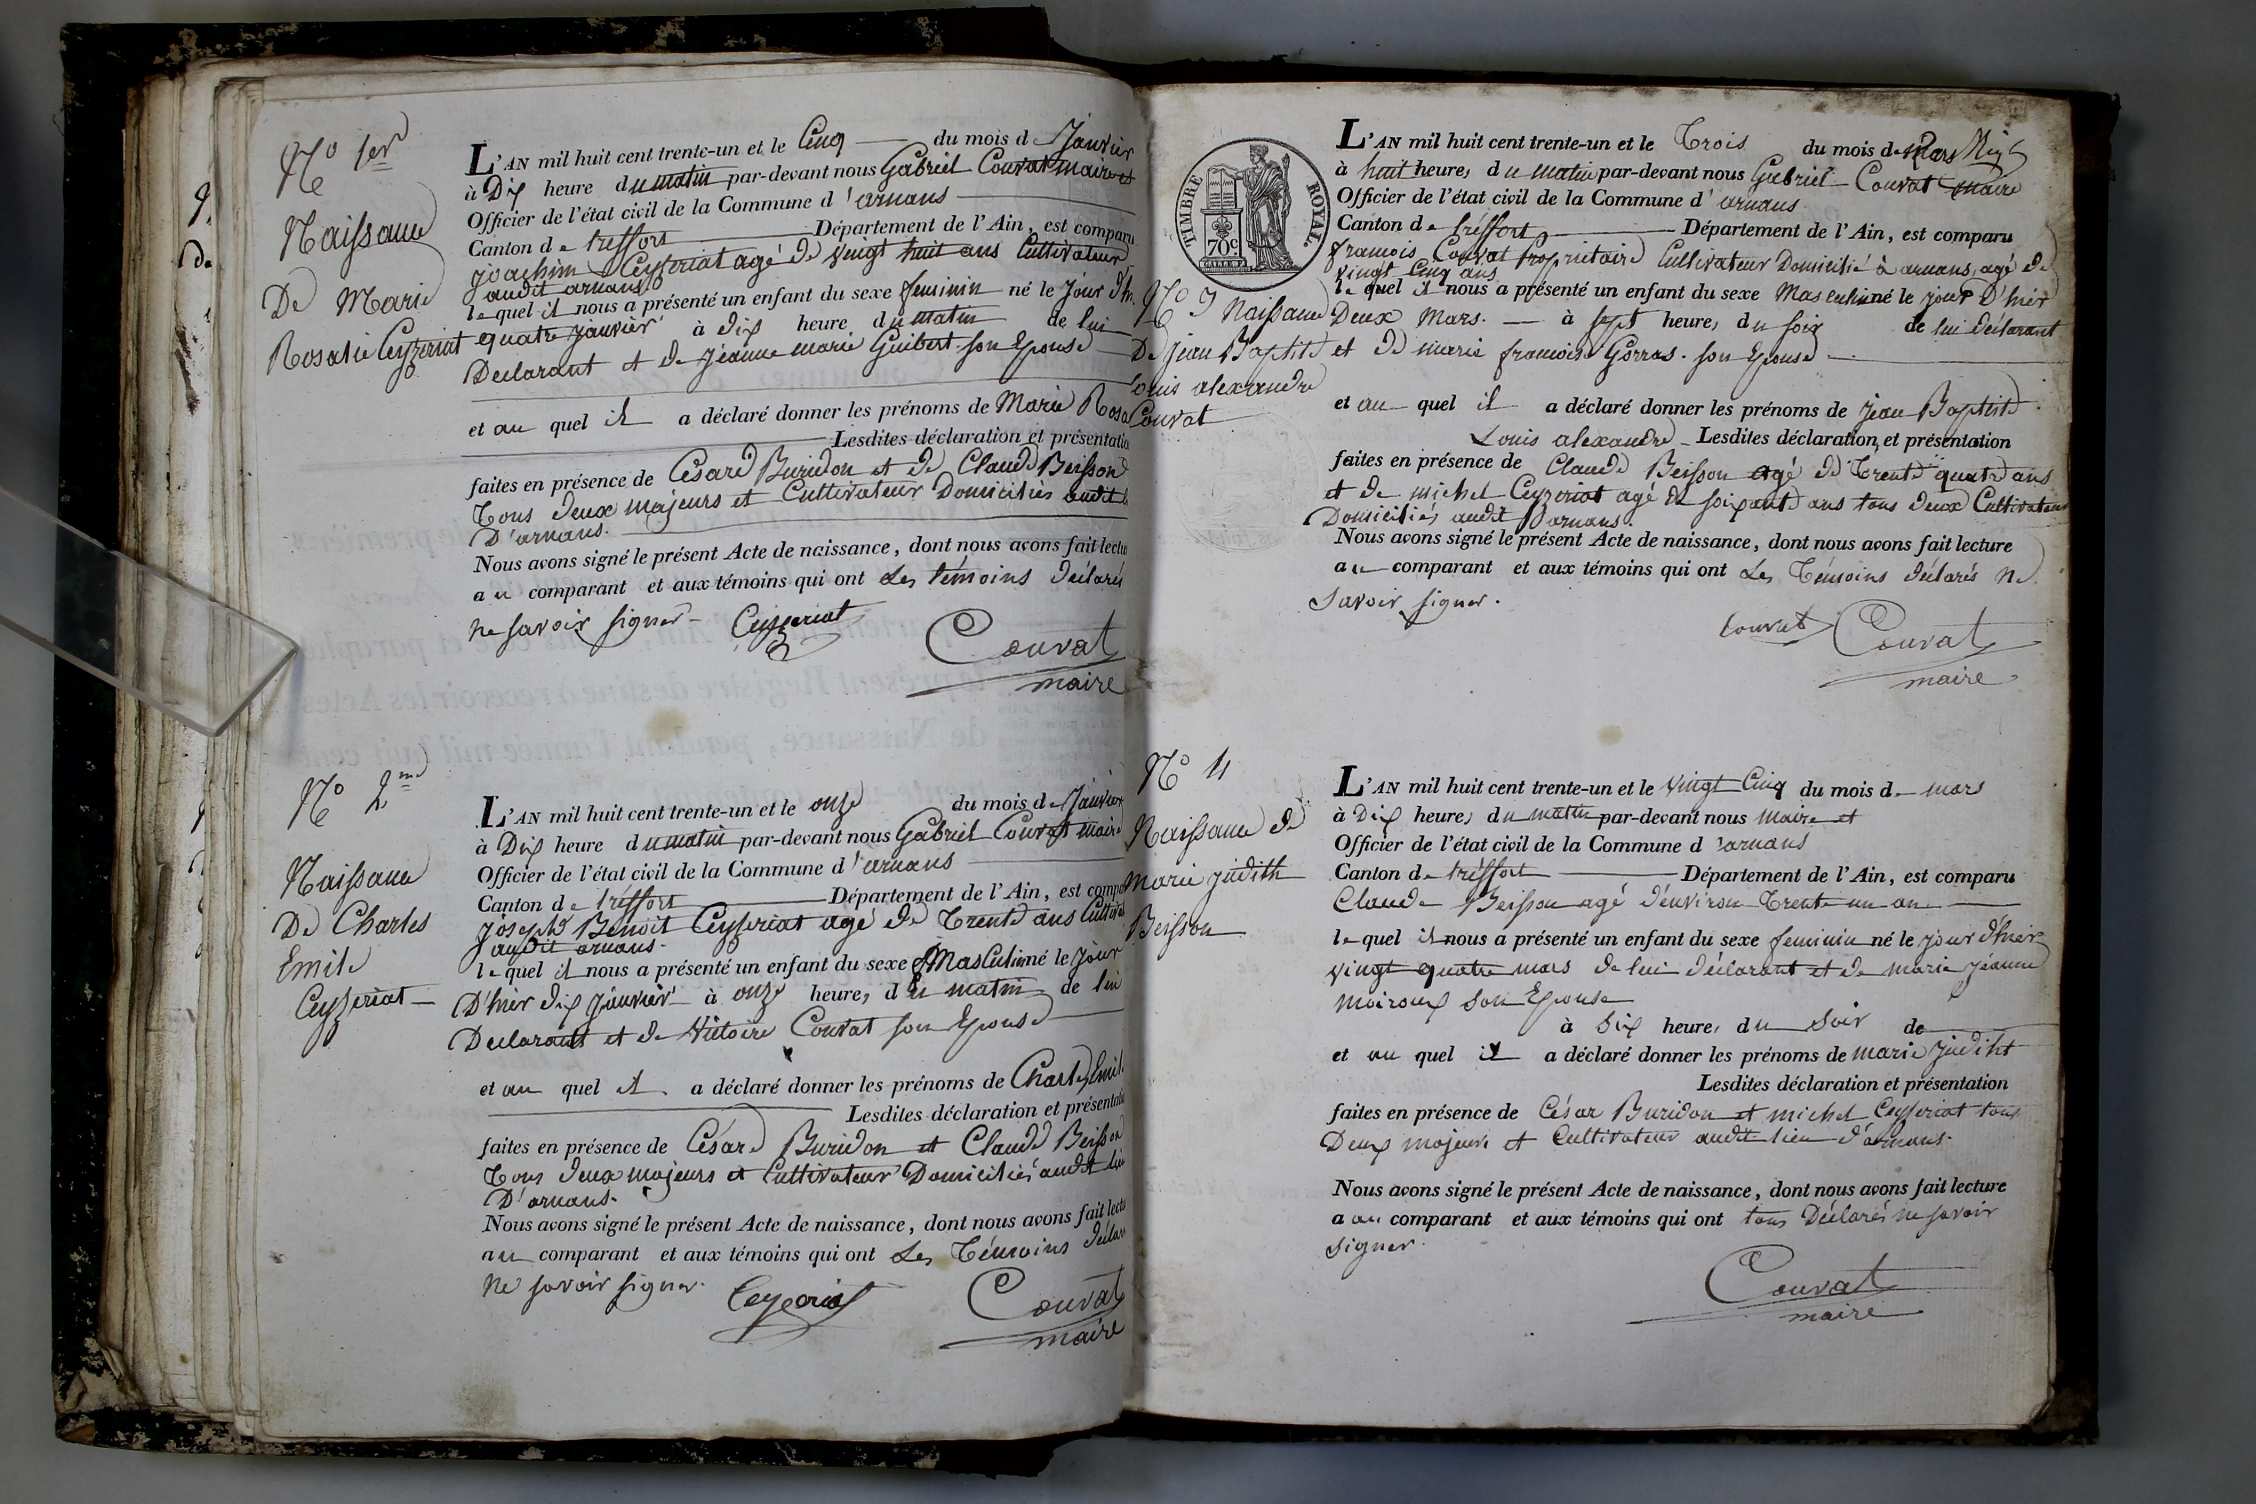 No 1er
Naissance
De Marie
Rosalie Ceyzeriat
L'AN mil huit cent trente-un et le Cinq du mois de Janvier
à Dix heure du matin par-devant nous Gabriel Couvat maire et
Officier de l'état civil de la Commune d'arnans
Canton de tréffort Département de l'Ain, est comparu
Joachim Ceyzeriat agé de vingt huit ans Cultivateur
audit arnans
lequel il nous a présenté un enfant du sexe feminin né le jour d'h
quatre janvier à dix heure du matin de lui
Declarant et de jeanne marie Guibert son Epouse
et au quel il a déclaré donner les prénoms de Marie Rosa
Lesdites déclaration et présentatio
faites en présence de César Buridon et de Claude Beisson
Tous deux majeurs et Cultivateur Domiciliés audit
D'arnans.
Nous avons signé le présent Acte de naissance, dont nous avons fait lectu
au comparant et aux témoins qui ont Les témoins déclarés
ne savoir signer - Ceyzeriat
Couvat
maire
No 2me
Naissance
De Charles
Emile
Ceyzeriat
L'AN mil huit cent trente-un et le onze du mois de Janvier
à Dix heure du matin par-devant nous Gabriel Couvat maire
Officier de l'état civil de la Commune d'arnans
Canton de tréffort Département de l'Ain, est compa
joseph Benoit Ceyzeriat agé de Trente ans Cultiva
audit arnans.
lequel il nous a présenté un enfant du sexe Masculin né le jour
D'hier dix janvier à onze heure, du matin de lui
Declarant et de Victoire Couvat son Epouse
et au quel il a déclaré donner les prénoms de Charles Emile
Lesdites déclaration et présentatio
faites en présence de César Buridon et Claude Beisson
Tous deux majeurs et Cultivateur Domiciliés audit lieu
D'arnans.
Nous avons signé le présent Acte de naissance, dont nous avons fait lectu
au comparant et aux témoins qui ont Les Témoins déclar
ne savoir signer. Ceyzeriat
Couvat
maire
TIMBRE ROYAL
70c
No 3 Naissance
De jean Baptiste
Louis alexandre
Couvat
L'AN mil huit cent trente-un et le Trois du mois de mars
à huit heure, du matin par-devant nous Gabriel Couvat maire
Officier de l'état civil de la Commune d'arnans
Canton de tréffort Département de l'Ain, est comparu
francois Couvat Propriétaire Cultivateur Domicilié à arnans, agé de
vingt cinq ans
lequel il nous a présenté un enfant du sexe Masculin né le jour D'hier
Deux Mars. à sept heure, du soir de lui déclarant
et de marie francoise Gorras. son Epouse
et au quel il a déclaré donner les prénoms de jean Baptiste
Louis alexandre Lesdites déclaration et présentation
faites en présence de Claude Beisson agé de Trente quatre ans
et de michel Ceyzeriat agé de soixante ans tous deux Cultivateur
Domiciliés audit arnans.
Nous avons signé le présent Acte de naissance, dont nous avons fait lecture
au comparant et aux témoins qui ont Les Témoins déclarés ne
savoir signer.
Couvat Couvat
maire
No 4
Naissance de
Marie judith
Beisson
L'AN mil huit cent trente-un et le vingt Cinq du mois de mars
à Dix heure, du matin par-devant nous maire et
Officier de l'état civil de la Commune d'arnans
Canton de tréffort Département de l'Ain, est comparu
Claude Beisson agé d'environ Trente un an
lequel il nous a présenté un enfant du sexe feminin né le jour d'hier
vingt quatre mars de lui déclarant et de marie jéanne
moiroux son Epouse
à six heure, du soir de
et au quel il a déclaré donner les prénoms de marie judiht
Lesdites déclaration et présentation
faites en présence de César Buridon et michel Ceyzeriat tous
Deux majeurs et Cultivateur audit lieu d'arnans.
Nous avons signé le présent Acte de naissance, dont nous avons fait lecture
a au comparant et aux témoins qui ont tous Déclarés ne savoir
signer.
Couvat
maire